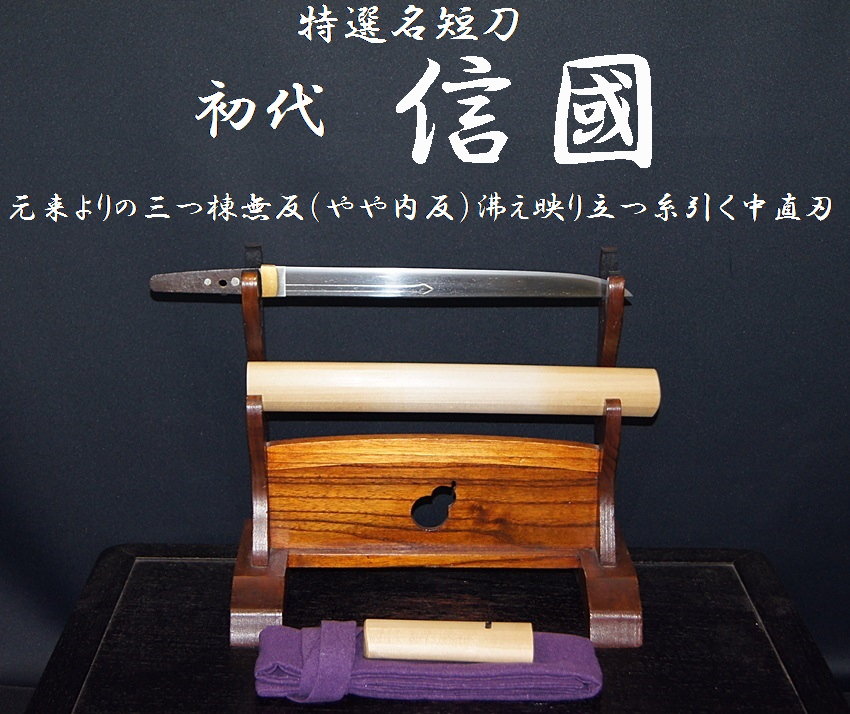 特選名短刀
初代 信國
元来よりの三つ棟無反(やや内反)沸え映り立つ糸引く中直刃